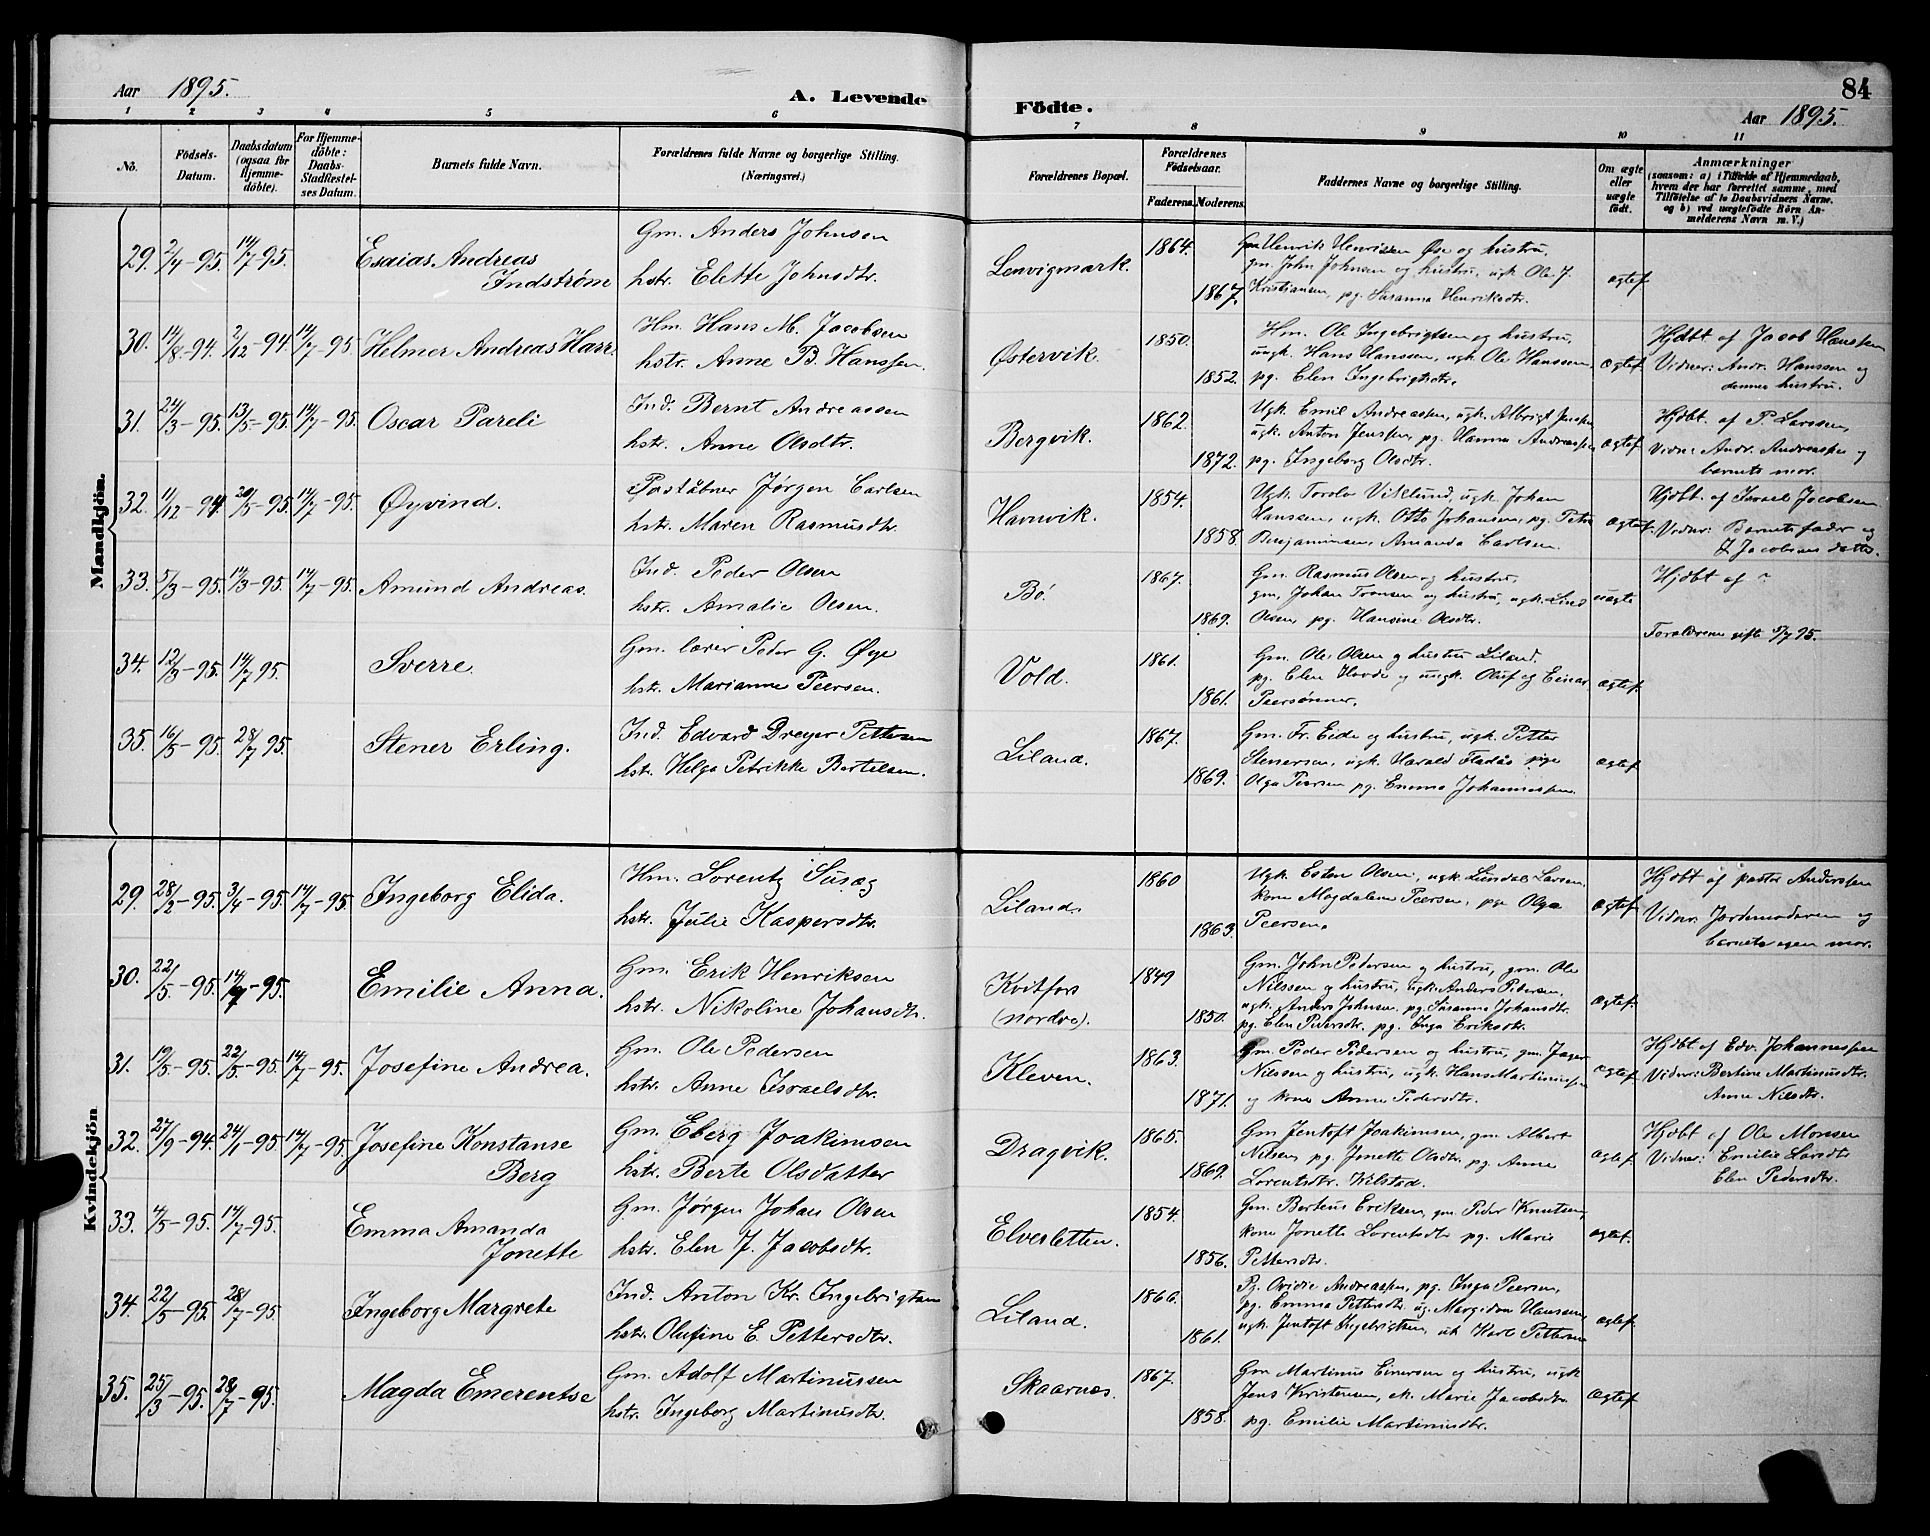 Aar 1895.
A. Levende
Födte.
84
Aar 1895.
1 2 3 4 5 6 7 8 9 10 11
No.
Födsels-Datum.
Daabsdatum (ogsaa for Hjemme-döbte).
For Hjemme-döbte: Daabs-Stadfæstelses Datum.
Barnets fulde Navn.
Forældrenes fulde Navne og borgerlige Stilling. (Næringsvei.)
Forældrenes Bopæl.
Forældrenes Födselsaar.
Faderens. Moderens.
Faddernes Navne og borgerlige Stilling.
Om ægte eller uægte født.
Anmærkninger
(saasom: a) i Tilfælde af Hjemmedaab, hvem der har forrettet samme, med Tilföielse af to Daabsvidners Navne. og b) ved uægtefödte Börn Anmelderens Navn m. V.)
Mandkjön.
29. 2/4-95. 14/7-95. Esaias Andreas Indstrøm
Gm. Anders Johnsen
hstr. Elette Johnsdtr.
Lenvigmark. 1864. 1867.
Gm Henrik Henriksen Øse og hustru,
gm. John Johnsen og hustru, ugk. Ole J.
Kristiansen, pg. Susanna Henriksdtr.
ægtef
30. 14/8-94. 2/12-94 14/7-95. Helmer Andreas Harr.
Hm. Hans M. Jacobsen
hstr. Anne B. Hanssen.
Østervik. 1850. 1852.
Hm. Ole Ingebrigtsen og hustru,
ungk. Hans Hanssen, ugk. Ole Hanssen,
pg. Elen Ingebrigtsdtr.
ægtef
Hjdbt. af Jacob Hanssen
Vidner: Andr. Hanssen og
dennes hustru.
31. 24/3-95. 13/5-95. 14/7-95. Oscar Pareli
Ind. Bernt Andreassen
hstr. Anne Olsdtr.
Bergvik. 1862. 1872.
Ugk. Emil Andreassen, ugk. Albrigt Jenssen
ugk. Anton Jenssen, pg. Hanna Andreassen
pg. Ingeborg Olsdtr.
ægtef
Hjdbt. af P. Larssen,
Vidne: Andr. Andreassen og
barnets mor.
32. 11/12-94. 20/5-95. 14/7-95. Øyvind.
Poståbner Jørgen Carlsen
hstr. Maren Rasmusdtr.
Havnvik. 1854. 1858.
Ugk. Torolv Viklund, ugk. Johan
Hanssen, ugk. Otto Johansen, pg. Petra
Benjaminsen, Amanda Carlsen.
ægtef.
Hjdbt. af Israel Jacobsen
Vidner: Barnets fader og
Jacobsens datter.
33. 5/3-95. 14/3-95. 14/7-95. Amund Andreas.
Ind. Peder Olsen
hstr. Amalie Olsen.
Bø. 1867. 1869.
Gm. Rasmus Olsen og hustru,
gm. Johan Tronsen og hustru, ugk.
Olsen, pg. Hansine Olsdtr.
uægte
Hjdbt af ?
Forældrene gift /7 95.
34. 12/3-95. 14/7 95. Sverre.
Gm. lærer Peder G. Øye
hstr. Marianne Peersen.
Vold. 1861. 1861.
Gm. Ole Olsen og hustru Liland.
pg. Elen Hovde og ungk. Oluf og Einar
Peersønner.
ægtef
35. 16/5-95. 28/7 95. Stener Erling.
Ind. Edvard Dreyer Pettersen
hstr. Helga Petrikke Bertelsen.
Liland. 1867. 1869.
Gm. Fr. Eide og hustru, ugk. Petter
Stenersen, ugk. Harald Fladås pige
Olga Peersen pg. Emma Johannessen.
ægtef
Kvindekjön
29. 28/2-95. 3/4-95. 14/7-95. Ingeborg Elida.
Hm. Lorentz Susæg
hstr. Julie Kaspersdtr.
Liland. 1860 1863.
Ugk. Esten Olsen, ugk. Lundal Larsen
kone Magdalene Peersen, pge Olga
Peersen.
ægtef
Hjdbt af pastor Anderssen
Vidner: Jordemoderen og
barnets egen mor.
30. 22/5-95. 14/7-95. Emilie Anna.
Gm. Erik Henriksen
hstr. Nikoline Johansdtr.
Kvitfors (nordre). 1849 1850.
Gm. John Pedersen og hustru, gm. Ole
Nilssen og hustru, ugk. Anders Petersen,
ugk. Anders Johnsen, pg. Susanna Johansdtr.
pg. Elen Pedersdtr. pg. Inga Eriksdtr.
ægtef
31. 19/5-95. 22/5-95 14/7-95. Josefine Andrea.
Gm. Ole Pedersen
hstr. Anne Israelsdtr.
Kleven. 1863. 1871.
Gm. Peder Pedersen og hustru, gm. Jæger
Nilssen og hustru, ugk. Hans Martinussen
og kone Anne Pedersdtr.
ægtef
Hjdbt af Edv. Johannessen
Vidner: Bertine Martinusdtr.
Anne Nilsdtr.
32. 27/9-94. 24/1-95. 14/7-95. Josefine Konstanse Berg
Gm. Eberg Joakimsen
hstr. Berte Olsdatter
Dragvik. 1865. 1869.
Gm Jentoft Joakimsen, gm. Albert
Nilsen pg. Jonette Olsdtr. pg. Anne
Lorentsdtr. Kilstad.
ægtef
Hjdbt af Ole Monsen
Vidner: Emilie Larsdtr
Elen Pedersdtr.
33. 4/5-95. 14/7-95. Emma Amanda Jonette
Gm. Jørgen Johan Olsen
hstr. Elen J. Jacobsdtr.
Elvesletten. 1854. 1856.
Gm. Berteus Eriksen, gm. Peder Knutsen,
kone Jonette Lorentsdtr pg. Marie
Pettersdtr.
ægtef.
34. 22/5-95. 28/7-95 Ingeborg Margrete
Ind. Anton Kr. Ingebrigtsen
hstr. Olufine E. Pettersdtr.
Liland. 1866. 1861.
Pg. Ovidie Andreassen, pg. Inga Peersen,
pg. Emma Pettersdtr ug. Margidon Hanssen
ugk. Jentoft Ingebrigtsen, uk Karl Pettersen
ægtef
35. 25/3-95. 28/7-95. Magda Emerentse
Gm. Adolf Martinussen
hstr. Ingeborg Martinusdtr.
Skaarnes. 1867. 1858.
Gm Martinus Einersen og hustru, ugk
Jens Kristensen, Marie Jacobsdtr
pg. Emilie Martinusdtr.
ægtef